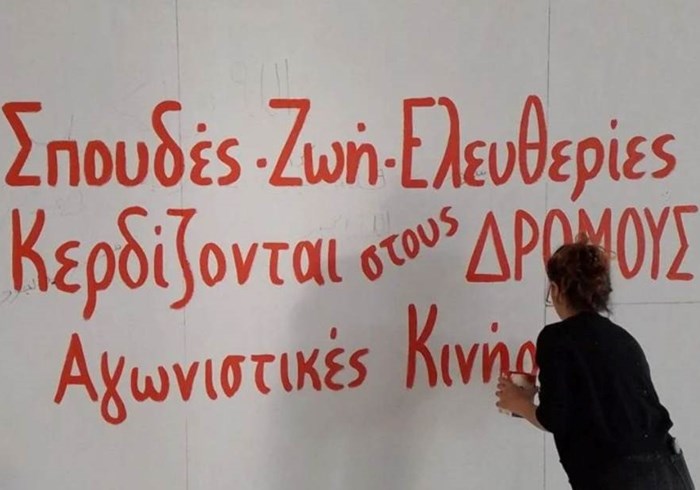 Σπουδές - Ζωή - Ελευθερίες
Κερδίζονται στους ΔΡΟΜΟΥΣ
Αγωνιστικές